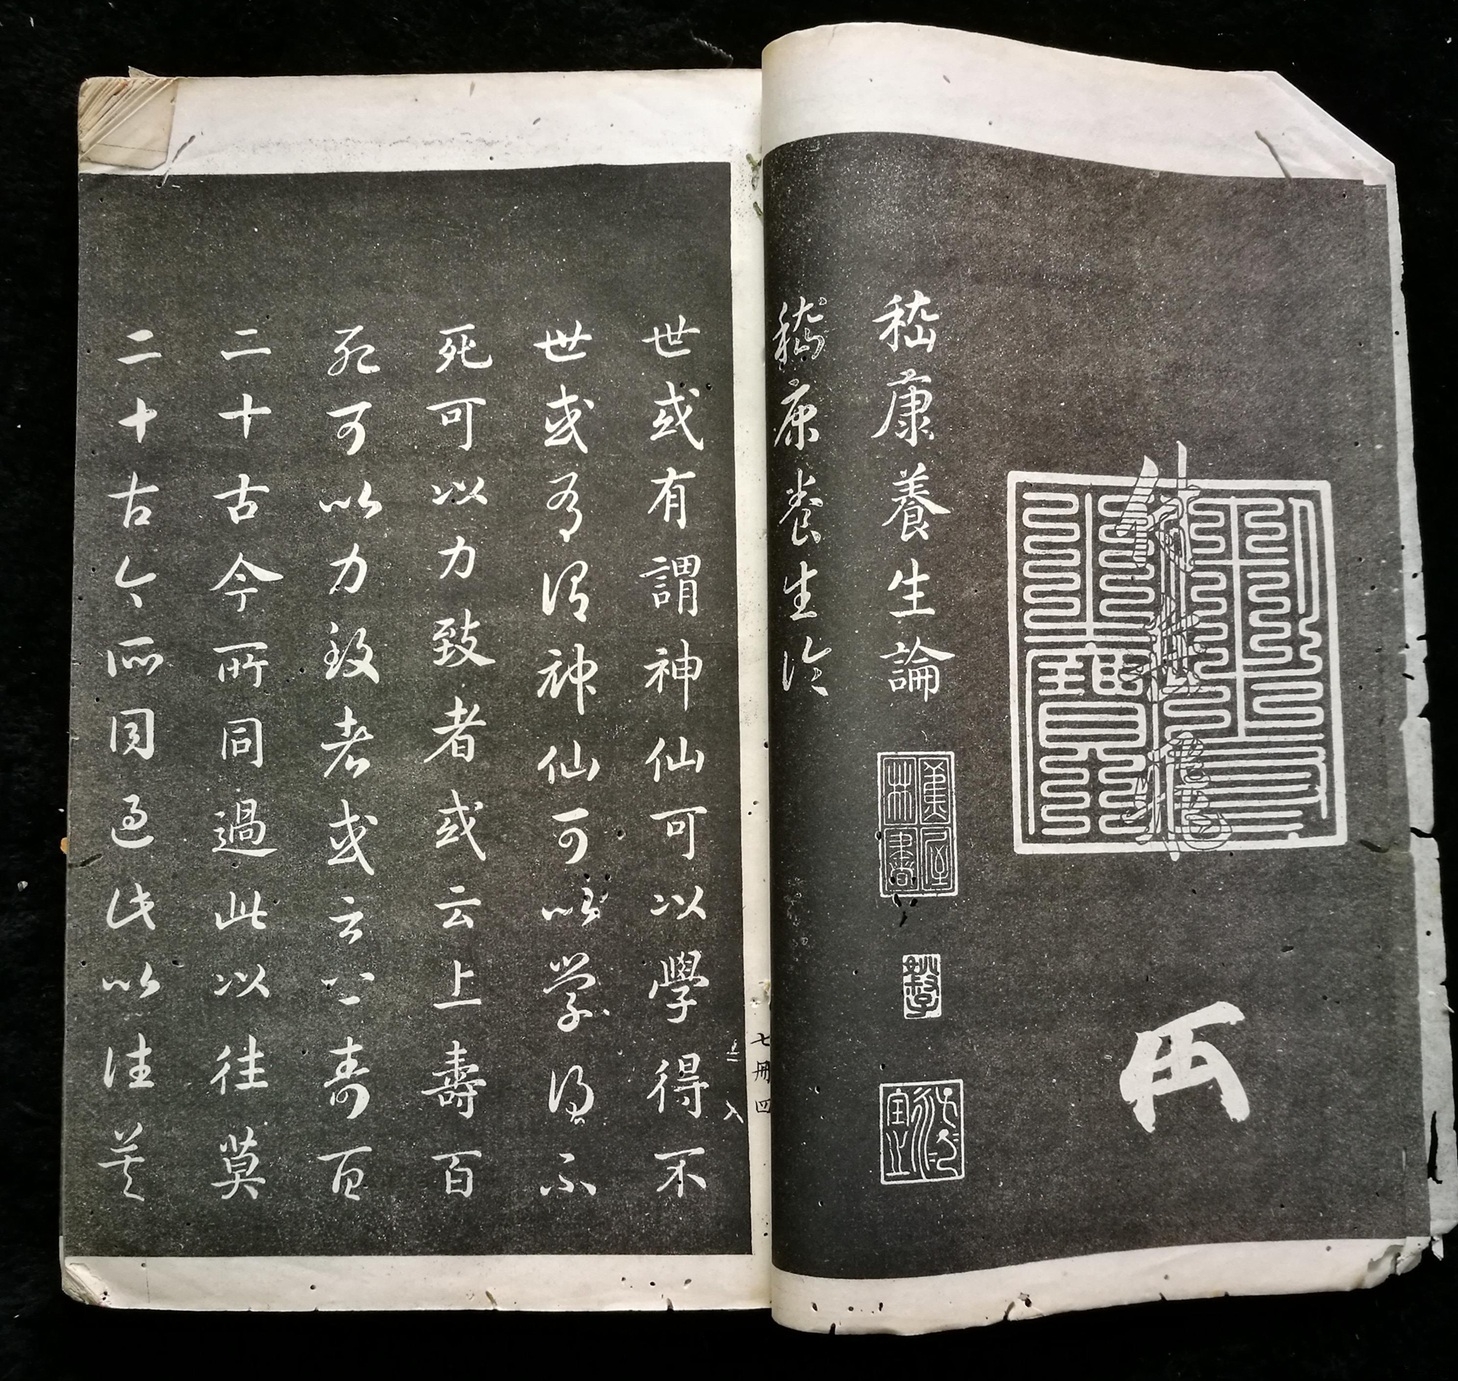 嵇康養生論
嵇康養生論
七冊四
世或有謂神仙可以學得不
世或有謂神仙可以學得不
死可以力致者或云上壽百
死可以力致者或云上壽百
二十古今所同過此以往莫
二十古今所同過此以往莫